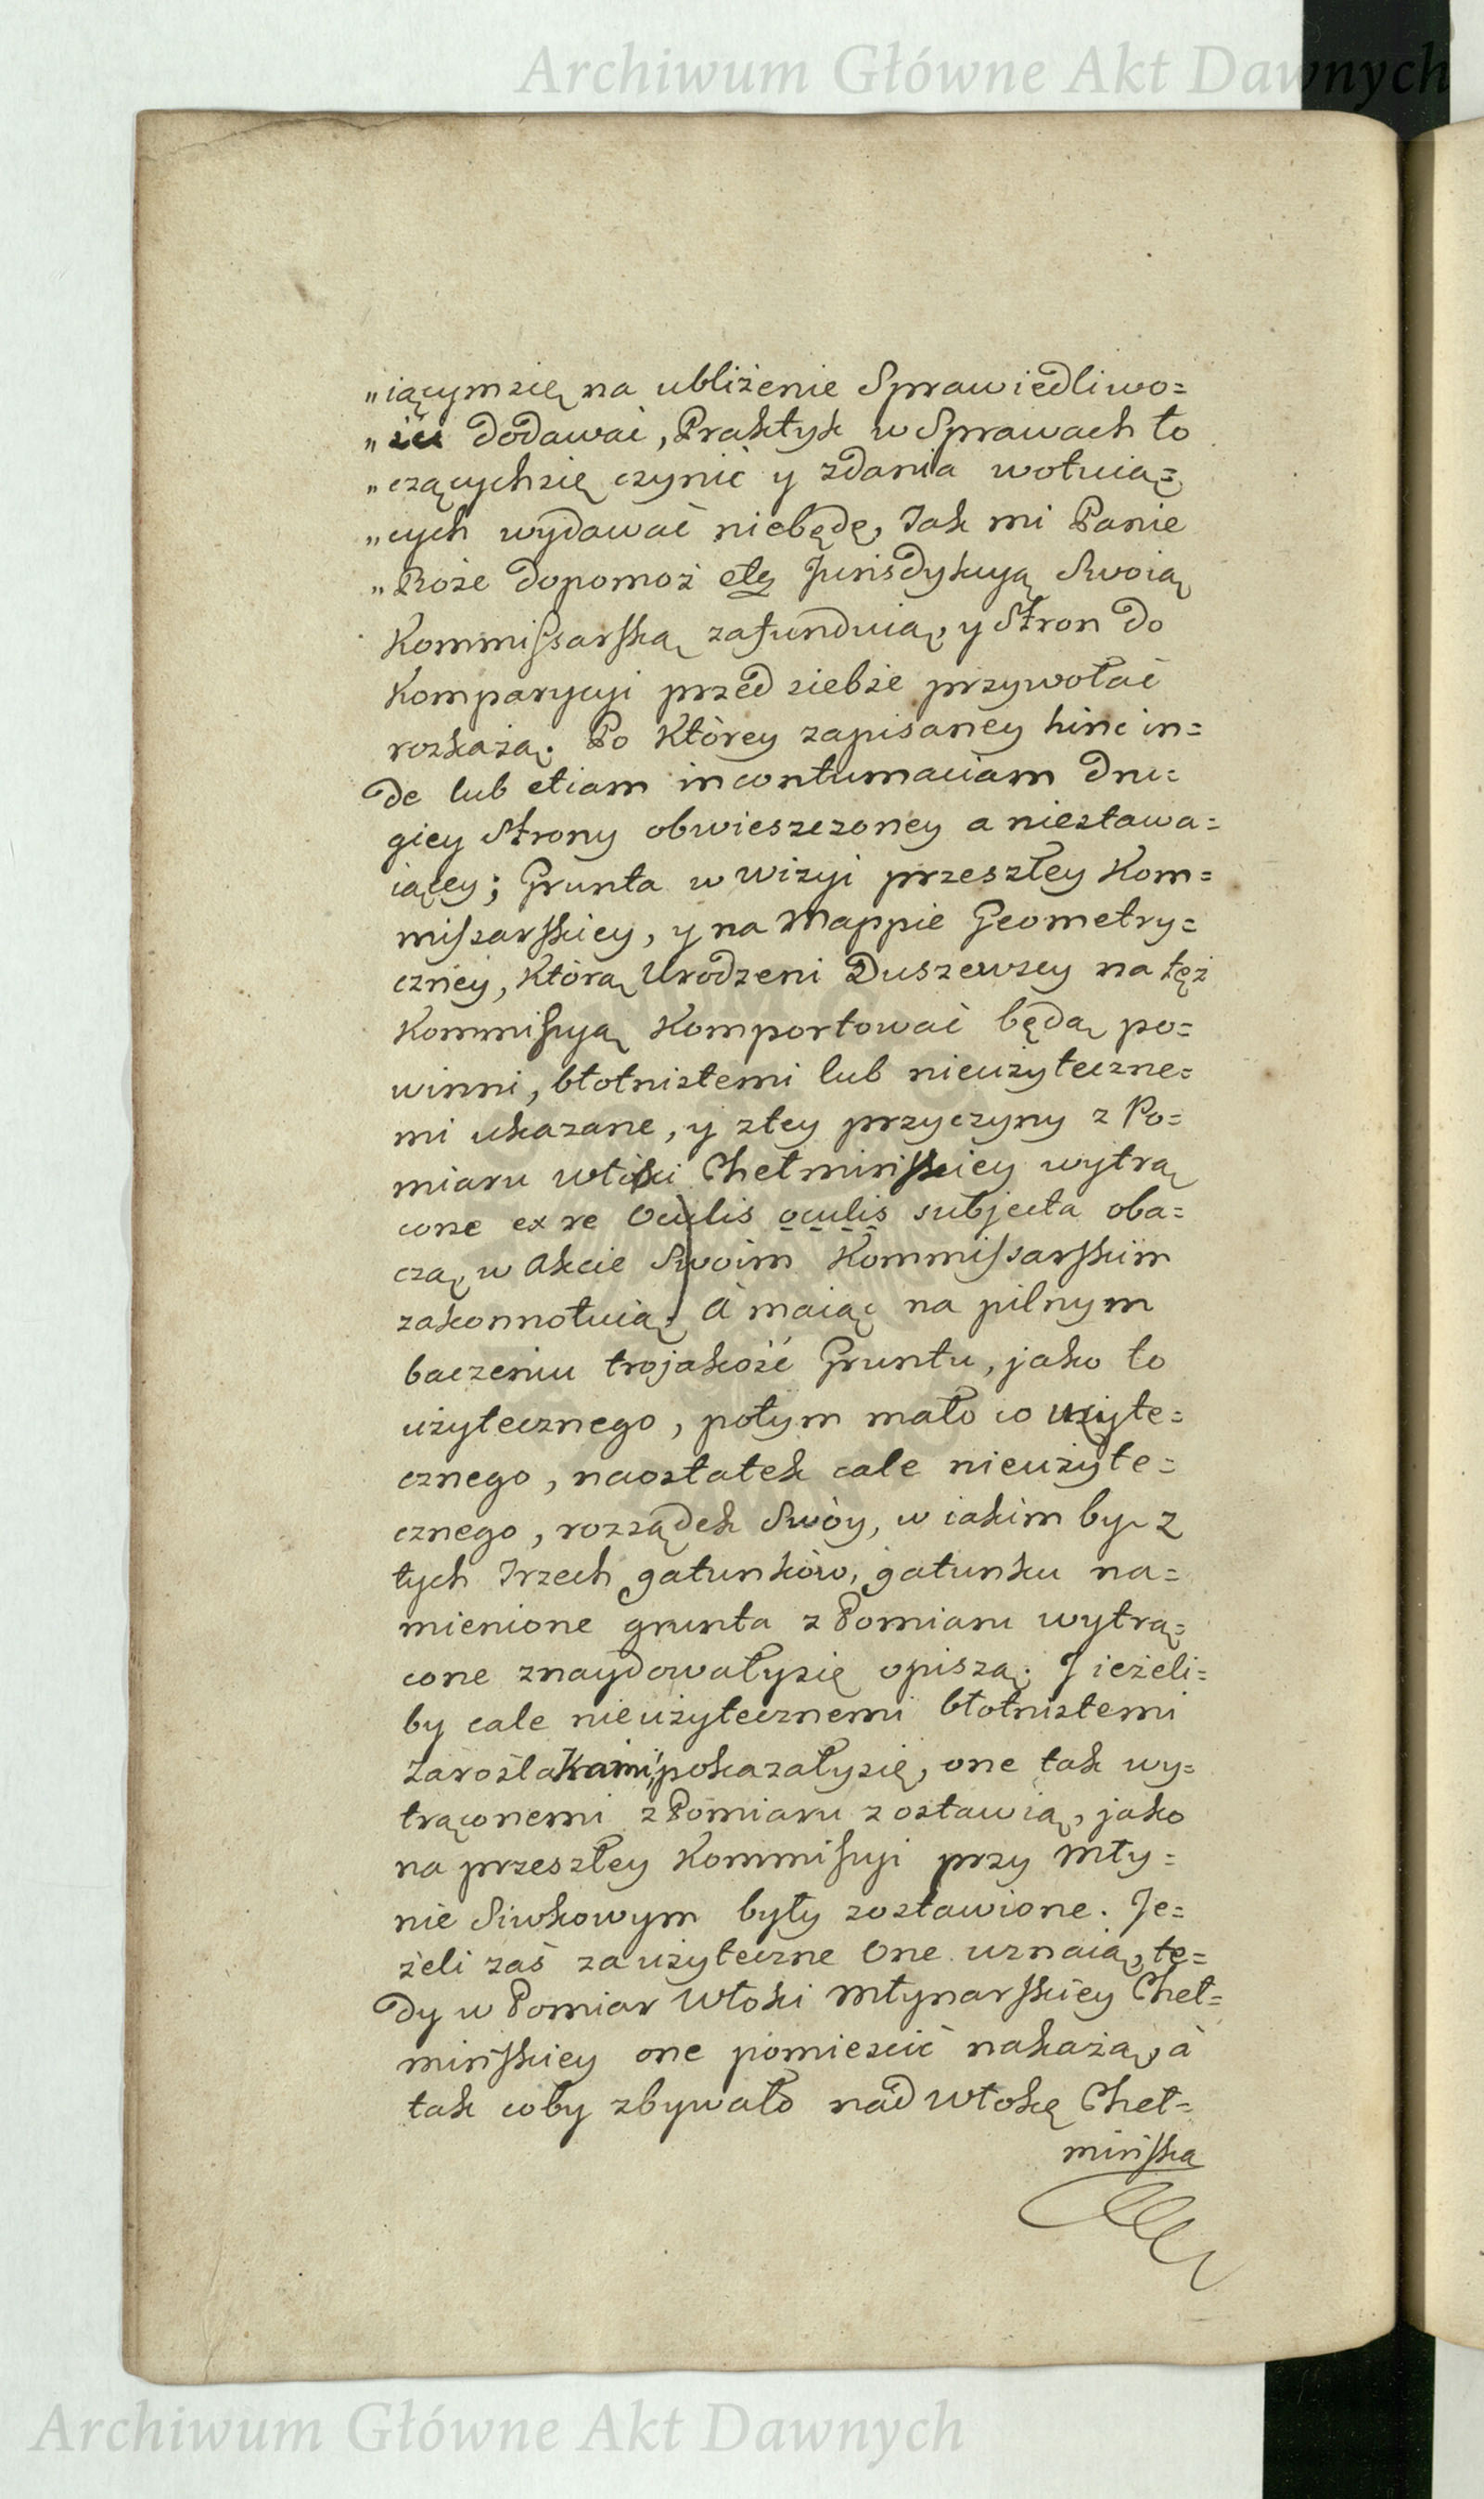 Archiwum Główne Akt Dawnych
„iącymsię na ubliżenie Sprawiedliwo=
„ści dodawać, Praktyk w Sprawach to
„czącychsię czynić y zdania wotuią=
„cych wydawać niebędę, Tak mi Panie
„Boże dopomoż etc Jurisdykcyą Swoią
Kommissarską zafunduią, y Stron do
Komparycyi przed siebie przywołać
rozkażą. Po Którey zapisaney hinc in=
de lub etiam in contumaciam dru=
giey Strony obwieszczoney a niestawa=
iącey; Grunta w wizyi przeszłey Kom=
missarskiey, y na Mappie Geometry=
czney, Którą Urodzeni Duszewscy na tęż
Kommissyą Komportować będą po=
winni, błotnistemi lub nieużyteczne=
mi ukazane, y ztey przyczyny z Po=
miaru włóki Chełmińskiey wytrą
cone ex re Oculis oculis subjecta oba=
czą, w Akcie Swoim Kommissarskim
zakonnotuią, A maiąc na pilnym
baczeniu trojakość Gruntu, jako to
użytecznego, potym mało co użyte=
cznego, naostatek cale nieużyte=
cznego, rozsądek Swóy, w iakim by z
tych Trzech gatunków, gatunku na=
mienione grunta z Pomiaru wytrą=
cone znaydowałysię opiszą. J ieżeli=
by cale nieużytecznemi błotnistemi
zaroślaKami, pokazałysię, one tak wy=
trąconemi z Pomiaru zostawią, jako
na przeszłey Kommissyi przy Mły=
nie Siwkowym były zostawione. Je=
żeli zaś za użyteczne One uznaią, te=
dy w Pomiar Włoki Młynarskiey Cheł=
mińskiey one pomieścić nakażą, à
tak coby zbywało nad Włokę Cheł=
mińską
Archiwum Główne Akt Dawnych